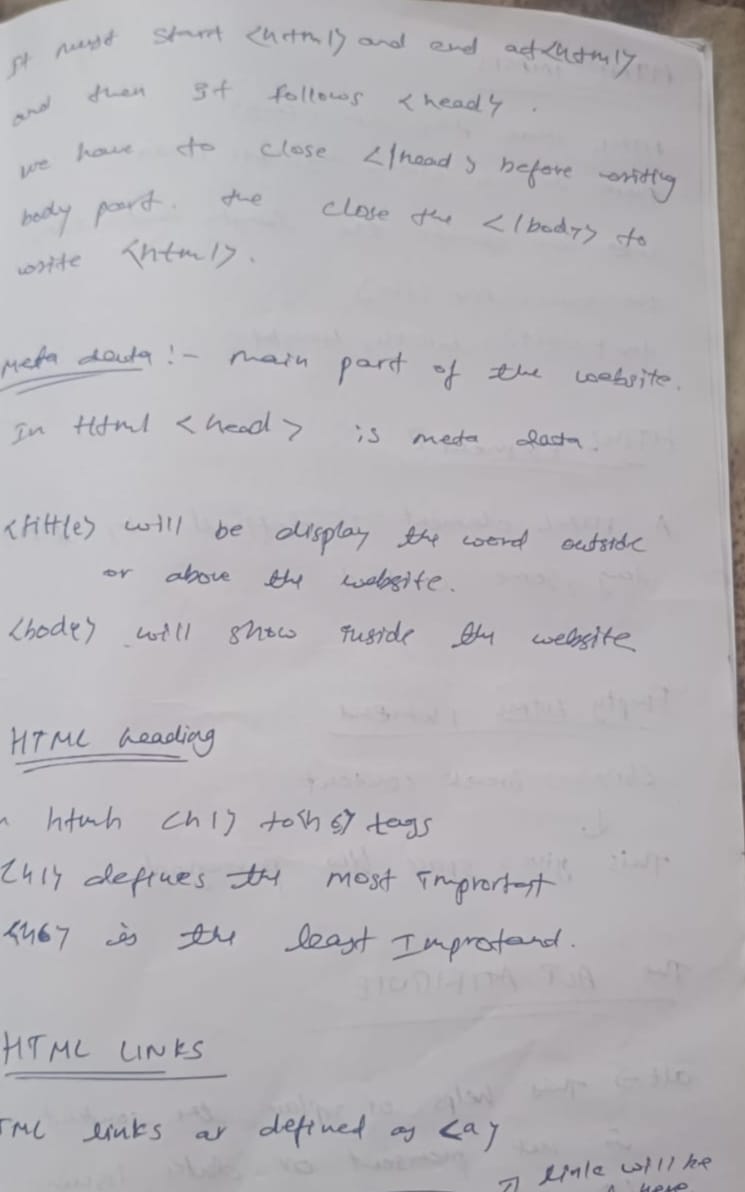 It must start <html> and end at <html>
and then It follows <head>.
we have to close </head> before writtig
body part. the close the </body> to
write <html>.
Meta data :- main part of the website.
In Html <head> is meta data.
<tittle> will be display the word outside
or above the website.
<body> will show inside the website
HTML heading
html <h1> to <h6> tags
<h1> defines the most Imprortest
<h6> is the least Improtand.
HTML LINKS
TML links ar defined as <a>
link will be
here